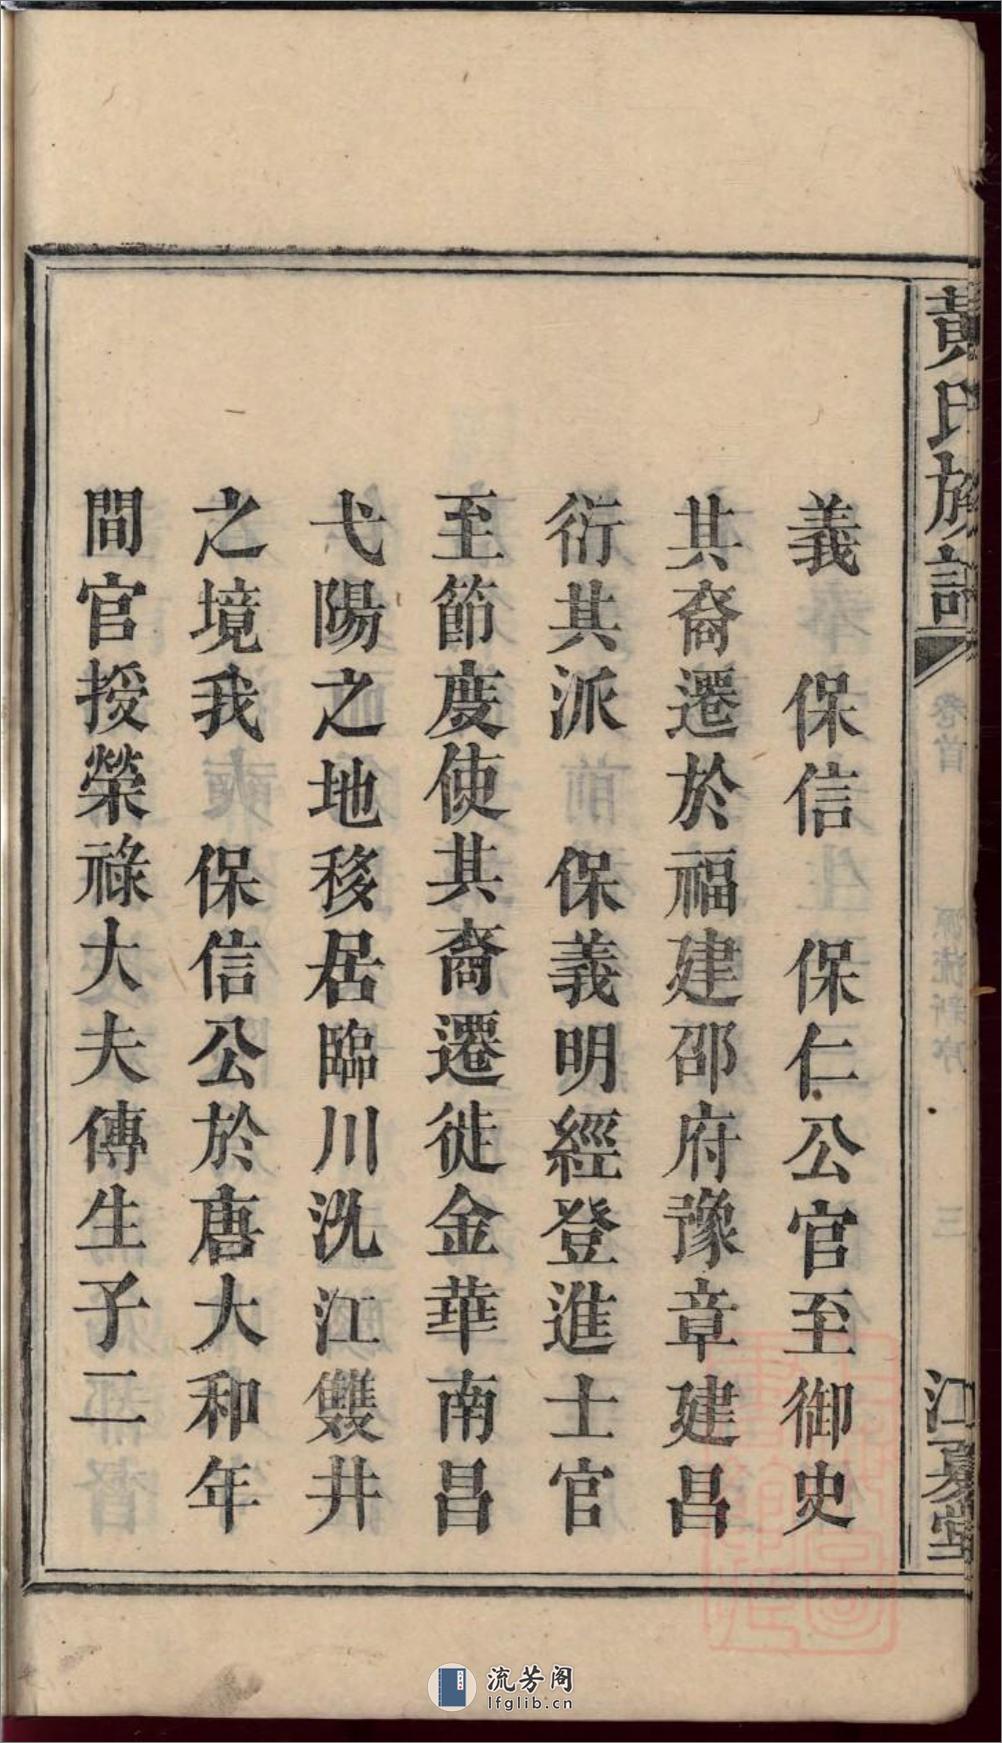 黃氏族譜
卷首
源流新序
三
江夏堂
義　保信　保仁公官至御史
其裔遷於福建邵府豫章建昌
衍其派　保義明經登進士官
至節度使其裔遷徙金華南昌
弋陽之地移居臨川㳘江雙井
之境我　保信公於唐大和年
間官授榮祿大夫傳生子二
流芳阁
lfglib.cn